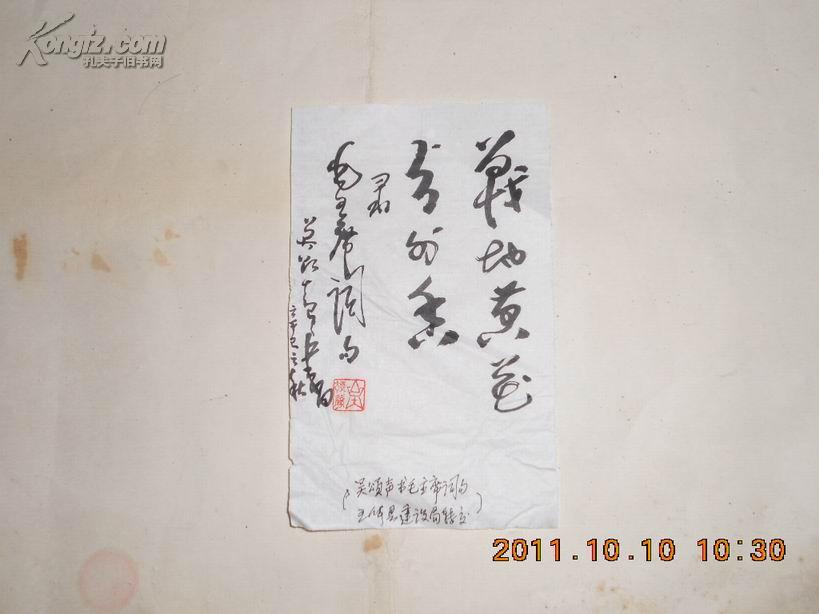 Kongfz.com
孔夫子旧书网
戰地黄花
分外香
录
毛主席词句
吴颂声书
辛巳之秋
吴颂声书毛主席词句
建设局转交
2011.10.10 10:30